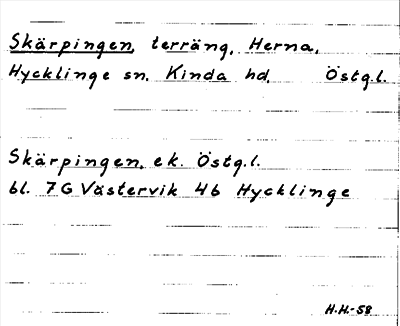 Skärpingen, terräng, Herna,
Hycklinge sn. Kinda hd, Östg.l.
Skärpingen, ek. Östg.l.
bl. 7G Västervik 4b Hycklinge
H.H.-58